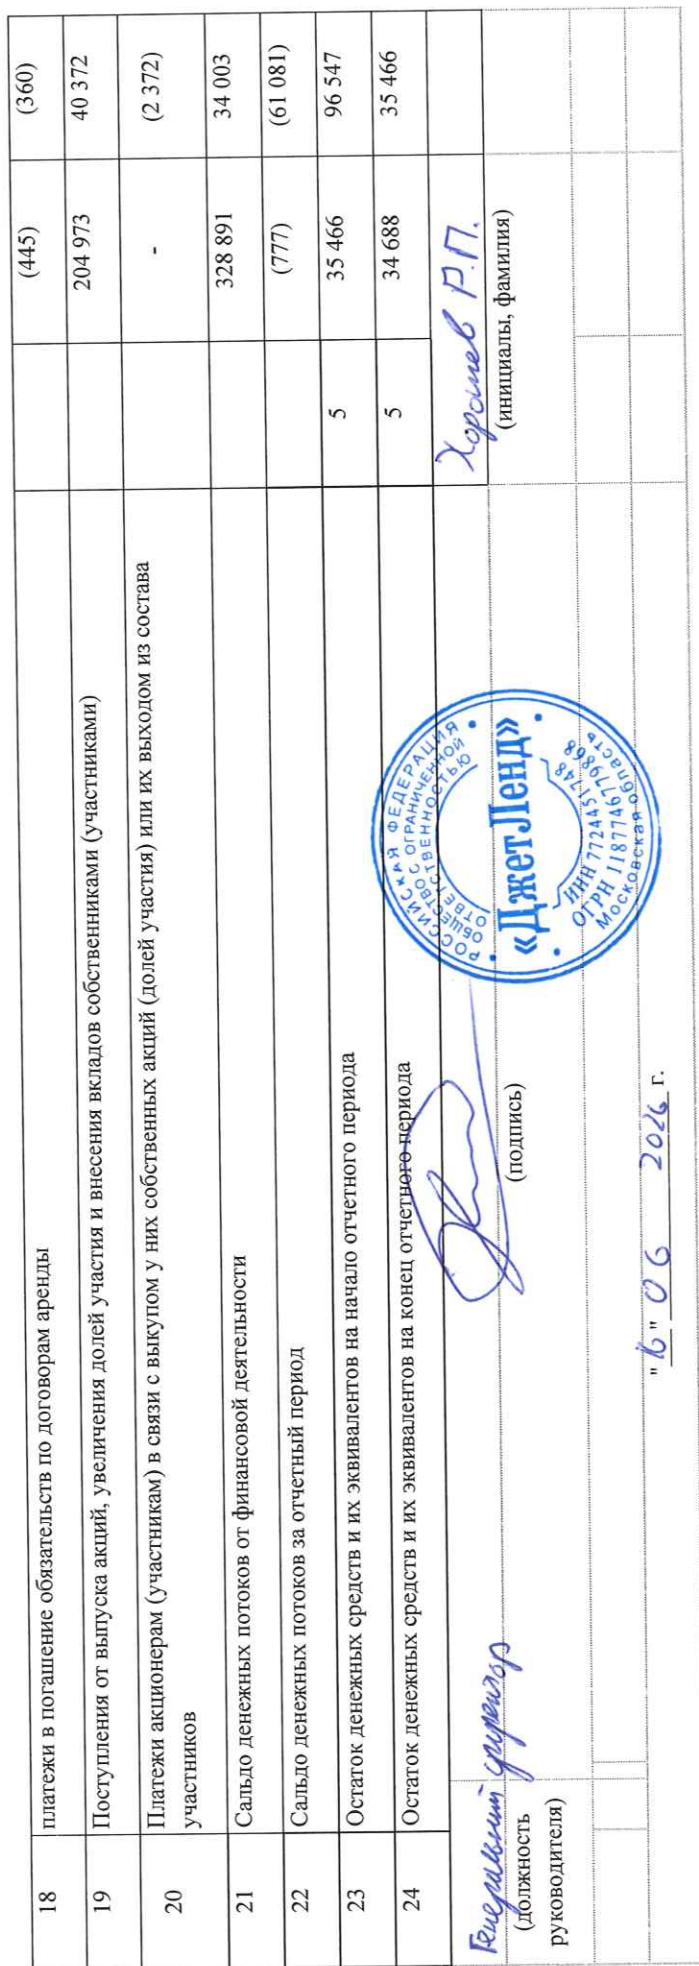 18 платежи в погашение обязательств по договорам аренды (445) (360)
19 Поступления от выпуска акций, увеличения долей участия и внесения вкладов собственниками (участниками) 204 973 40 372
20 Платежи акционерам (участникам) в связи с выкупом у них собственных акций (долей участия) или их выходом из состава
участников - (2 372)
21 Сальдо денежных потоков от финансовой деятельности 328 891 34 003
22 Сальдо денежных потоков за отчетный период (777) (61 081)
23 Остаток денежных средств и их эквивалентов на начало отчетного периода 5 35 466 96 547
24 Остаток денежных средств и их эквивалентов на конец отчетного периода 5 34 688 35 466
Генеральный директор Хорошев Р.П.
(должность
руководителя) (подпись) (инициалы, фамилия)
РОССИЙСКАЯ ФЕДЕРАЦИЯ
ОБЩЕСТВО С ОГРАНИЧЕННОЙ
ОТВЕТСТВЕННОСТЬЮ
«ДжетЛенд»
ИНН 7724451748
ОГРН 1187746779868
Московская область
" 06 2026 г.